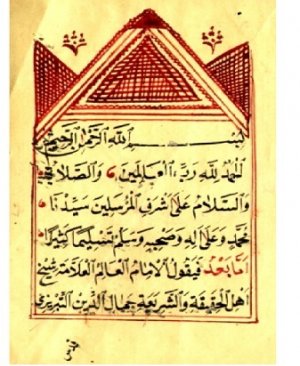 بسم الله الرحمن الرحيم
الحمد لله رب العالمين والصلاة
والسلام على أشرف المرسلين سيدنا
محمد وعلى اله وصحبه وسلم تسليما كثيرا
أما بعد فيقول الامام العالم العلامة شيخ
أهل الحقيقة والشريعة جمال الدين التبريزي